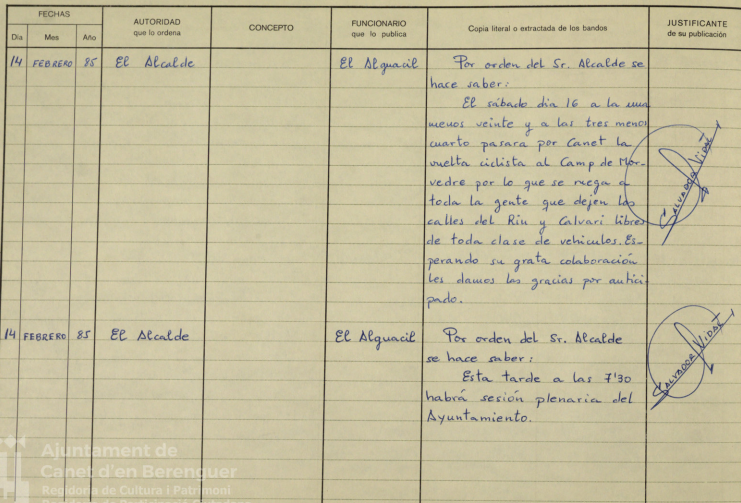 FECHAS
Día Mes Año
AUTORIDAD
que lo ordena
CONCEPTO
FUNCIONARIO
que lo publica
Copia literal o extractada de los bandos
JUSTIFICANTE
de su publicación
14 FEBRERO 85 El Alcalde El Alguacil Por orden del Sr. Alcalde se
hace saber:
El sábado dia 16 a la una
menos veinte y a las tres menos
cuarto pasara por Canet la
vuelta ciclista al Camp de Mor-
vedre por lo que se ruega a
toda la gente que dejen las
calles del Riu y Calvari libres
de toda clase de vehiculos. Es-
perando su grata colaboración
les damos las gracias por antici-
pado.
SALVADOR VIDAL
14 FEBRERO 85 El Alcalde El Alguacil Por orden del Sr. Alcalde
se hace saber:
Esta tarde a las 7'30
habrá sesión plenaria del
Ayuntamiento.
SALVADOR VIDAL
Ajuntament de
Canet d'en Berenguer
Regidoria de Cultura i Patrimoni